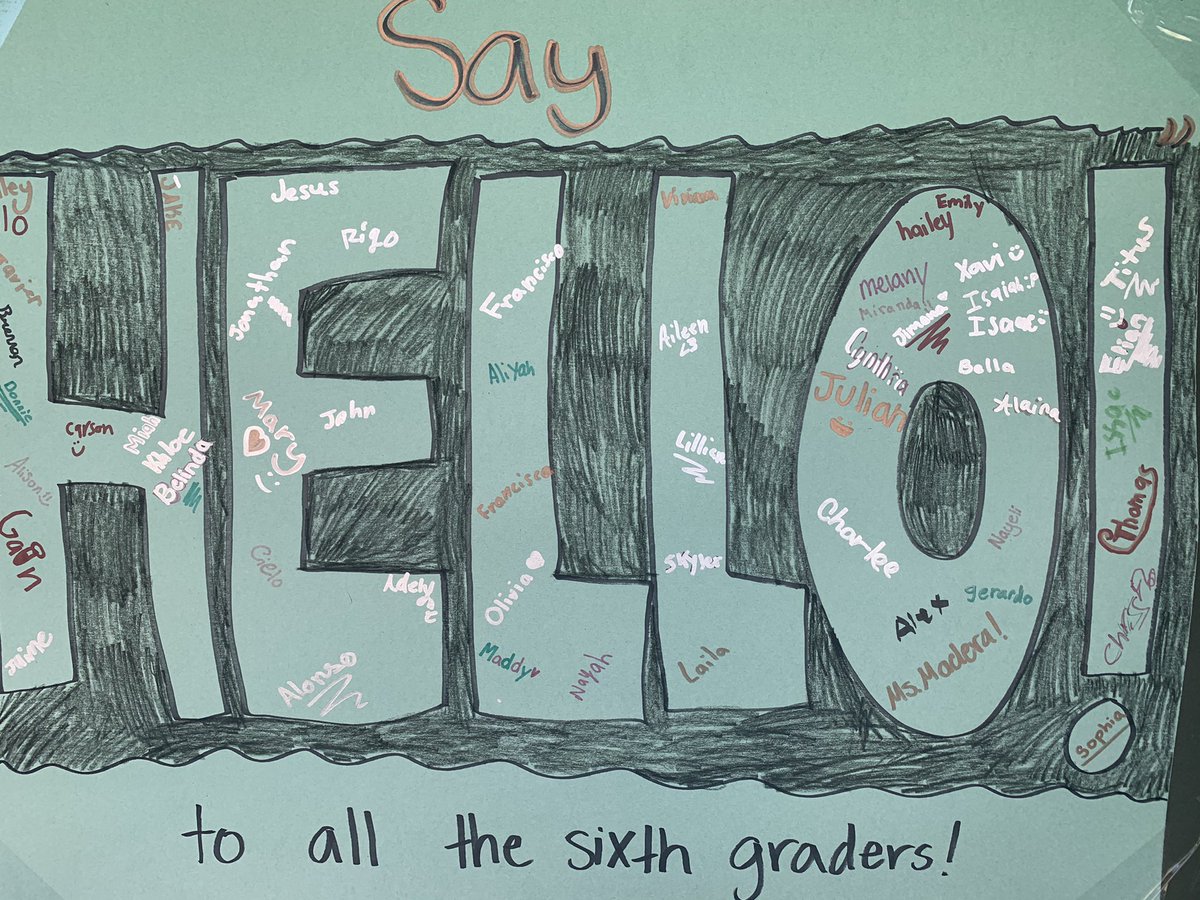 Say
HELLO!
10
Brennon
Donis
Carson
Alison
Jaime
JAKE
Miah
Khloe
Belinda
Jesus
Rigo
Jonathan
Mary
John
Cielo
Alonso
Francisco
Aliyah
Francisca
Olivia
Maddy
Nayah
Viviana
Aileen
<3
Lillian
Skyler
Laila
Emily
hailey
melany
Miranda!!
Jimena
Xavi
Isaiah :P
Isaac
Cynthia
Julian
Bella
Alaina
Charlee
Nayeli
Alex
gerardo
Ms. Madera!
Titus
Elias
Issac
Thomas
Sophia
to all the sixth graders!